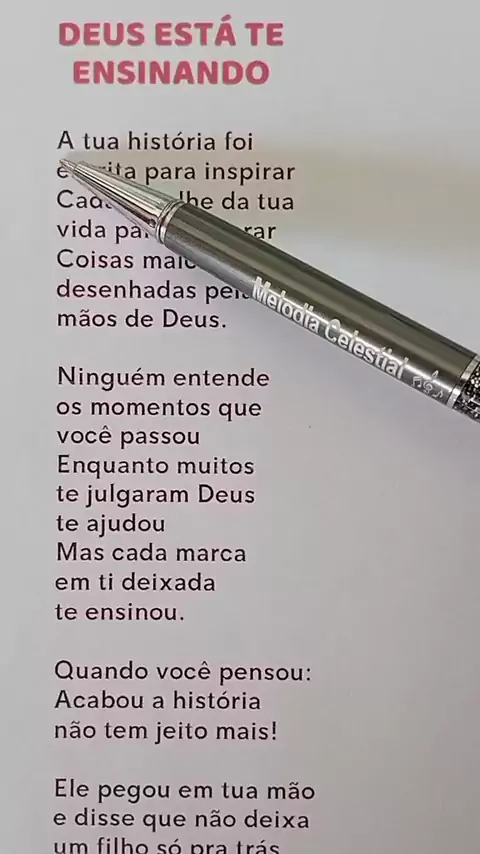 DEUS ESTÁ TE
ENSINANDO
A tua história foi
para inspirar
da tua
vida
Coisas
desenhadas
mãos de Deus.
Melodia Celestial
Ninguém entende
os momentos que
você passou
Enquanto muitos
te julgaram Deus
te ajudou
Mas cada marca
em ti deixada
te ensinou.
Quando você pensou:
Acabou a história
não tem jeito mais!
Ele pegou em tua mão
e disse que não deixa
um filho só pra trás